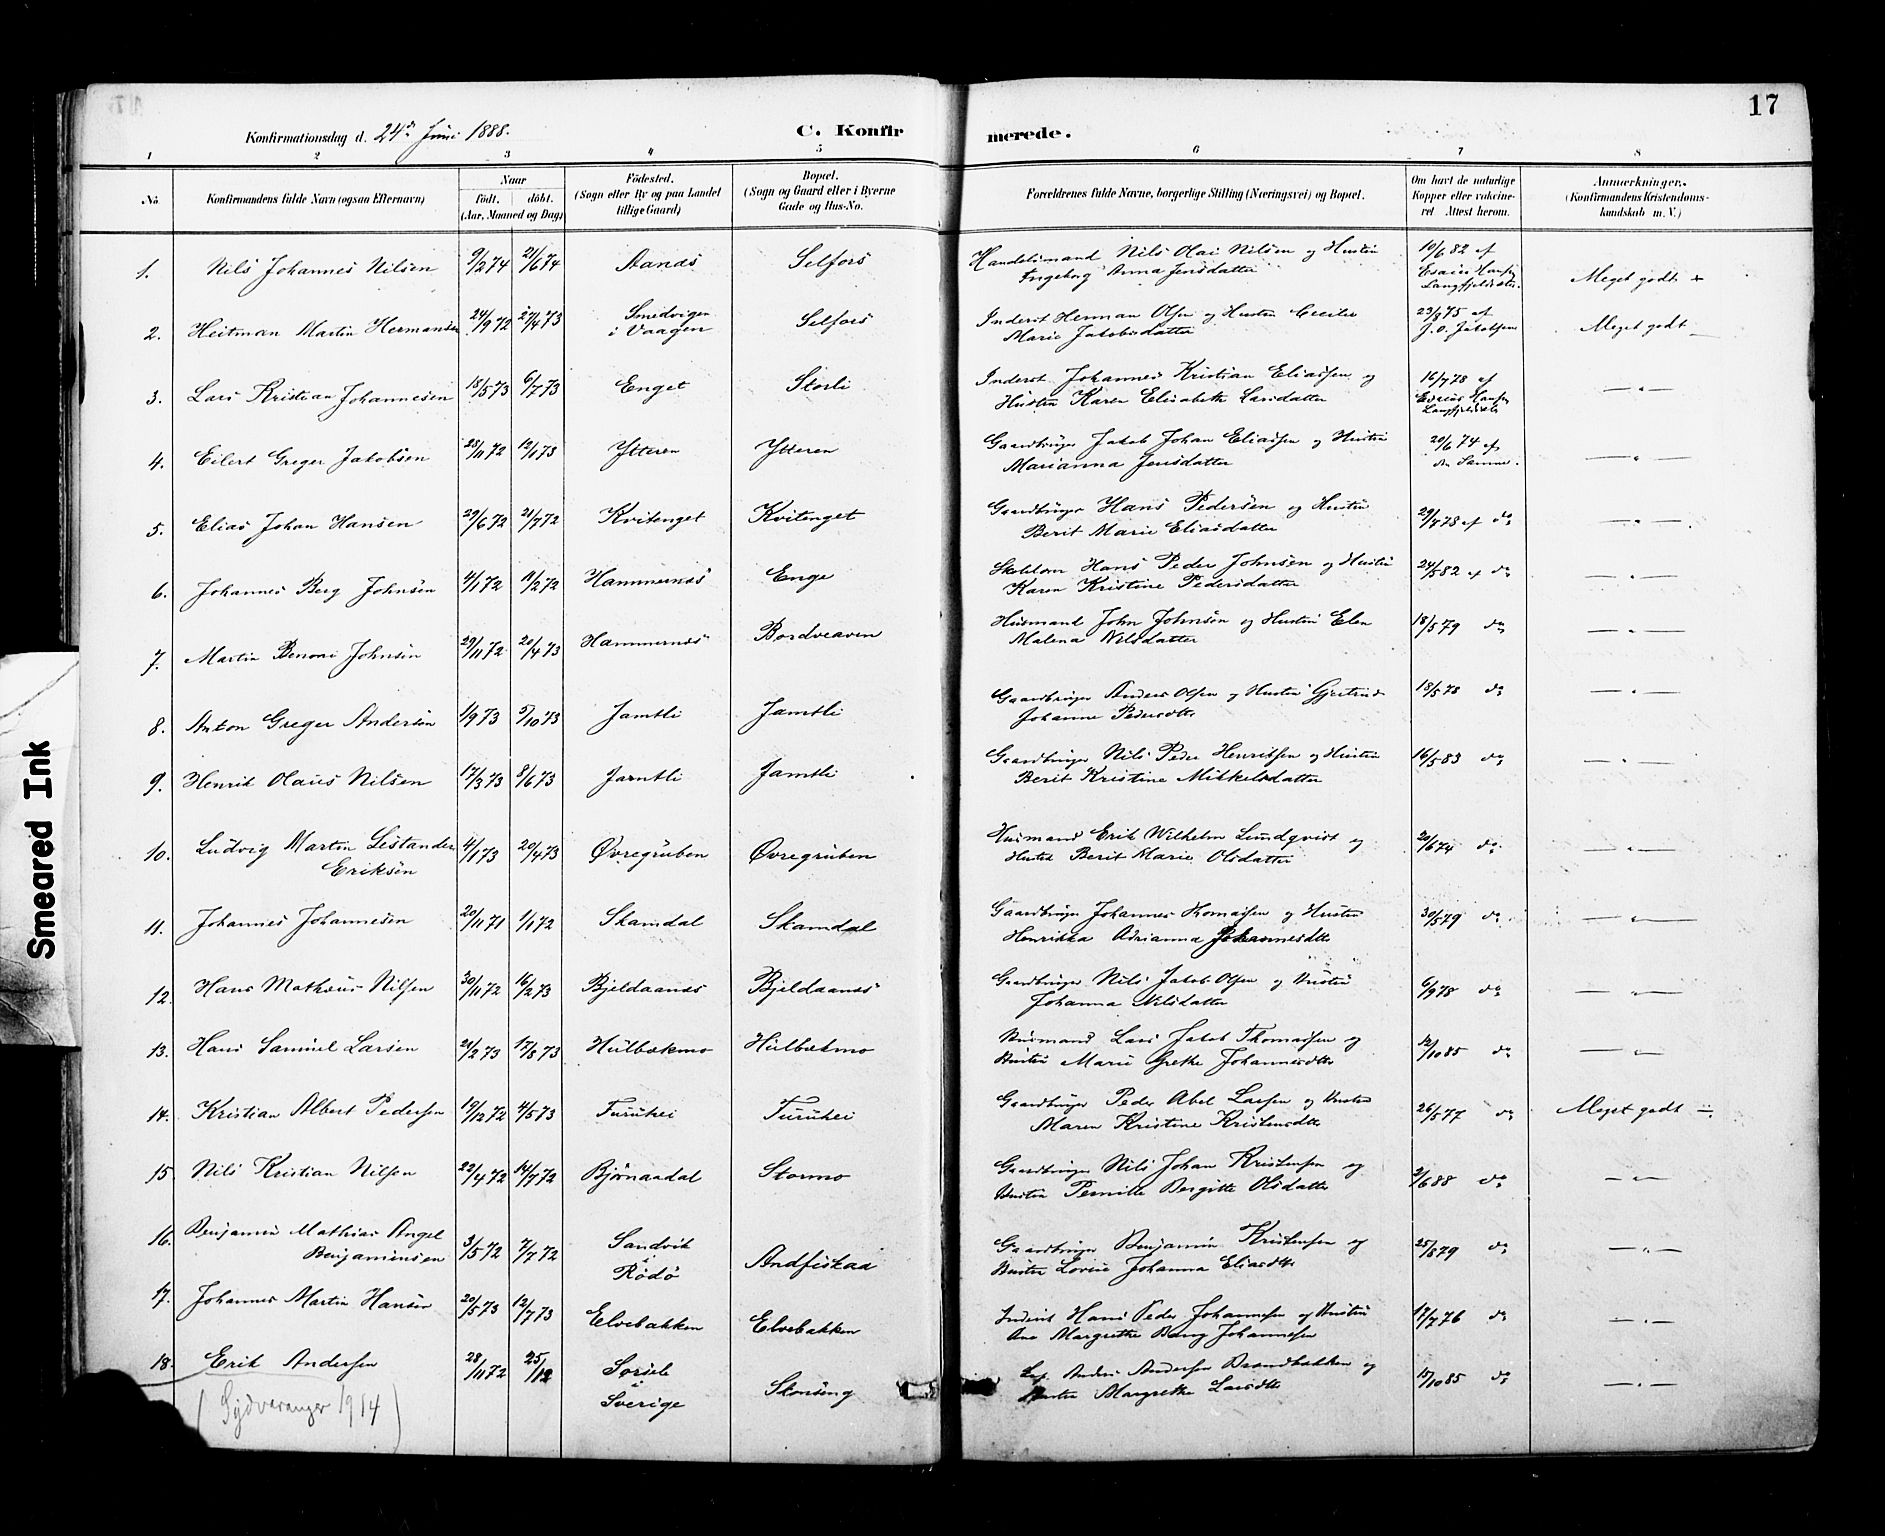 17
Konfirmationsdag d. 24de Juni 1888.
C. Konfirmerede.
1 2 3 4 5 6 7 8
No
Konfirmandens fulde Navn (ogsaa Efternavn)
Naar
født. døbt.
(Aar, Maaned og Dag)
Fødested.
(Sogn eller By og paa Landet
tillige Gaard)
Bopæl.
(Sogn og Gaard eller i Byerne
Gade og Hus-No.
Forældrenes fulde Navne, borgerlige Stilling (Næringsvei) og Bopæl.
Om havt de naturlige
Kopper eller vakcine-
ret Attest herom.
Anmærkninger.
(Konfirmandens Kristendoms-
kundskab m. V.)
1. Nils Johannes Nilsen 9/2 74 21/6 74 Aanæs Selfors Handelsmand Nils Olai Nilsen og Hustru
Ingeborg Anna Jensdatter 10/6 82 af
Esaias Hansen
Langfjeldsæter. Meget godt +
2. Heitman Martin Hermansen 24/9 72 27/4 73 Smedvigen
i Vaagen Selfors Inderst Herman Olsen og Hustru Cecilie
Marie Jakobsdatter 23/8 75 af
J. O. Jakobsen Meget godt
3. Lars Kristian Johannesen 18/5 73 6/7 73 Enget Storli Inderst Johannes Kristian Eliassen og
Hustru Karen Elisabeth Larsdatter 16/7 78 af
Esaias Hansen
Langfjeldsæter — " —
4. Eilert Greger Jakobsen 28/11 72 12/1 73 Ytteren Ytteren Gaardbruger Jakob Johan Eliassen og Hustru
Marianna Jensdatter 20/6 74 af
den Samme. — " —
5. Elias Johan Hansen 29/6 72 21/7 72 Kvitenget Kvitenget Gaardbruger Hans Pedersen og Hustru
Berit Marie Eliasdatter 29/7 78 af do — " —
6. Johannes Berg Johnsen 4/1 72 11/2 72 Hammernæs Enge Hans Peder Johnsen og Hustru
Karen Kristine Pedersdatter 24/5 82 af do — " —
7. Martin Benoni Johnsen 29/11 72 20/4 73 Hammernæs Bordvedaven Husmand John Johnsen og Hustru Elen
Malena Nilsdatter 18/5 79 do — " —
8. Anton Greger Andersen 1/9 73 5/10 73 Jamtli Jamtli Gaardbruger Anders Olsen og Hustru Gjertrud
Johanne Pedersdtr 18/5 78 do — " —
9. Henrik Olaus Nilsen 17/3 73 8/6 73 Jamtli Jamtli Gaardbruger Nils Peder Henriksen og Hustru
Berit Kristine Mikkelsdatter 16/5 83 do — " —
10. Ludvig Martin Lestander
Eriksen 4/1 73 20/4 73 Øvregruben Øvregruben Husmand Erik Wilhelm Lundqvist og
Hustru Berit Marie Olsdatter 20/6 74 do — " —
11. Johannes Johannesen 20/11 71 1/1 72 Skamdal Skamdal Gaardbruger Johannes Thomassen og Hustru
Henrikka Adrianna Johannesdtr 30/5 79 do — " —
12. Hans Mathæus Nilsen 30/11 72 16/2 73 Bjeldaanæs Bjeldaanæs Gaardbruger Nils Jakob Olsen og Hustru
Johanna Nilsdatter 6/9 78 do — " —
13. Hans Samuel Larsen 21/2 73 17/8 73 Hulbækmo Hulbækmo Husmand Lars Jakob Thomassen og
Hustru Marie Grethe Johannesdtr 12/10 85 do — " —
14. Kristian Albert Pedersen 19/12 72 4/5 73 Furuhei Furuhei Gaardbruger Peder Abel Larsen og Hustru
Maren Kristine Kristensdtr 26/5 77 do Meget godt ÷.
15. Nils Kristian Nilsen 22/4 72 14/7 72 Bjørnaadal Stormo Gaardbruger Nils Johan Kristensen og
Hustru Pernille Bergitte Olsdatter 2/6 88 do — " —
16. Benjamin Mathias Angel
Benjaminsen 3/5 72 7/7 72 Sandvik
i
Rødø Andfiskaa Gaardbruger Benjamin Kristensen og
Hustru Lovise Johanna Eliasdtr 25/8 79 do — " —
17. Johannes Martin Hansen 20/5 73 12/7 73 Elvebakken Elvebakken Inderst Hans Peder Johannesen og Hustru
Ane Margrethe Bang Johannesen 17/7 76 do — " —
18. Erik Andersen 28/11 72 25/12 Sorsele
i
Sverige Storsæng Lap Anders Andersen Brandbakken og
Hustru Margrethe Larsdtr 15/10 85 do — " —
(Sydvaranger 1914)
Smeared Ink